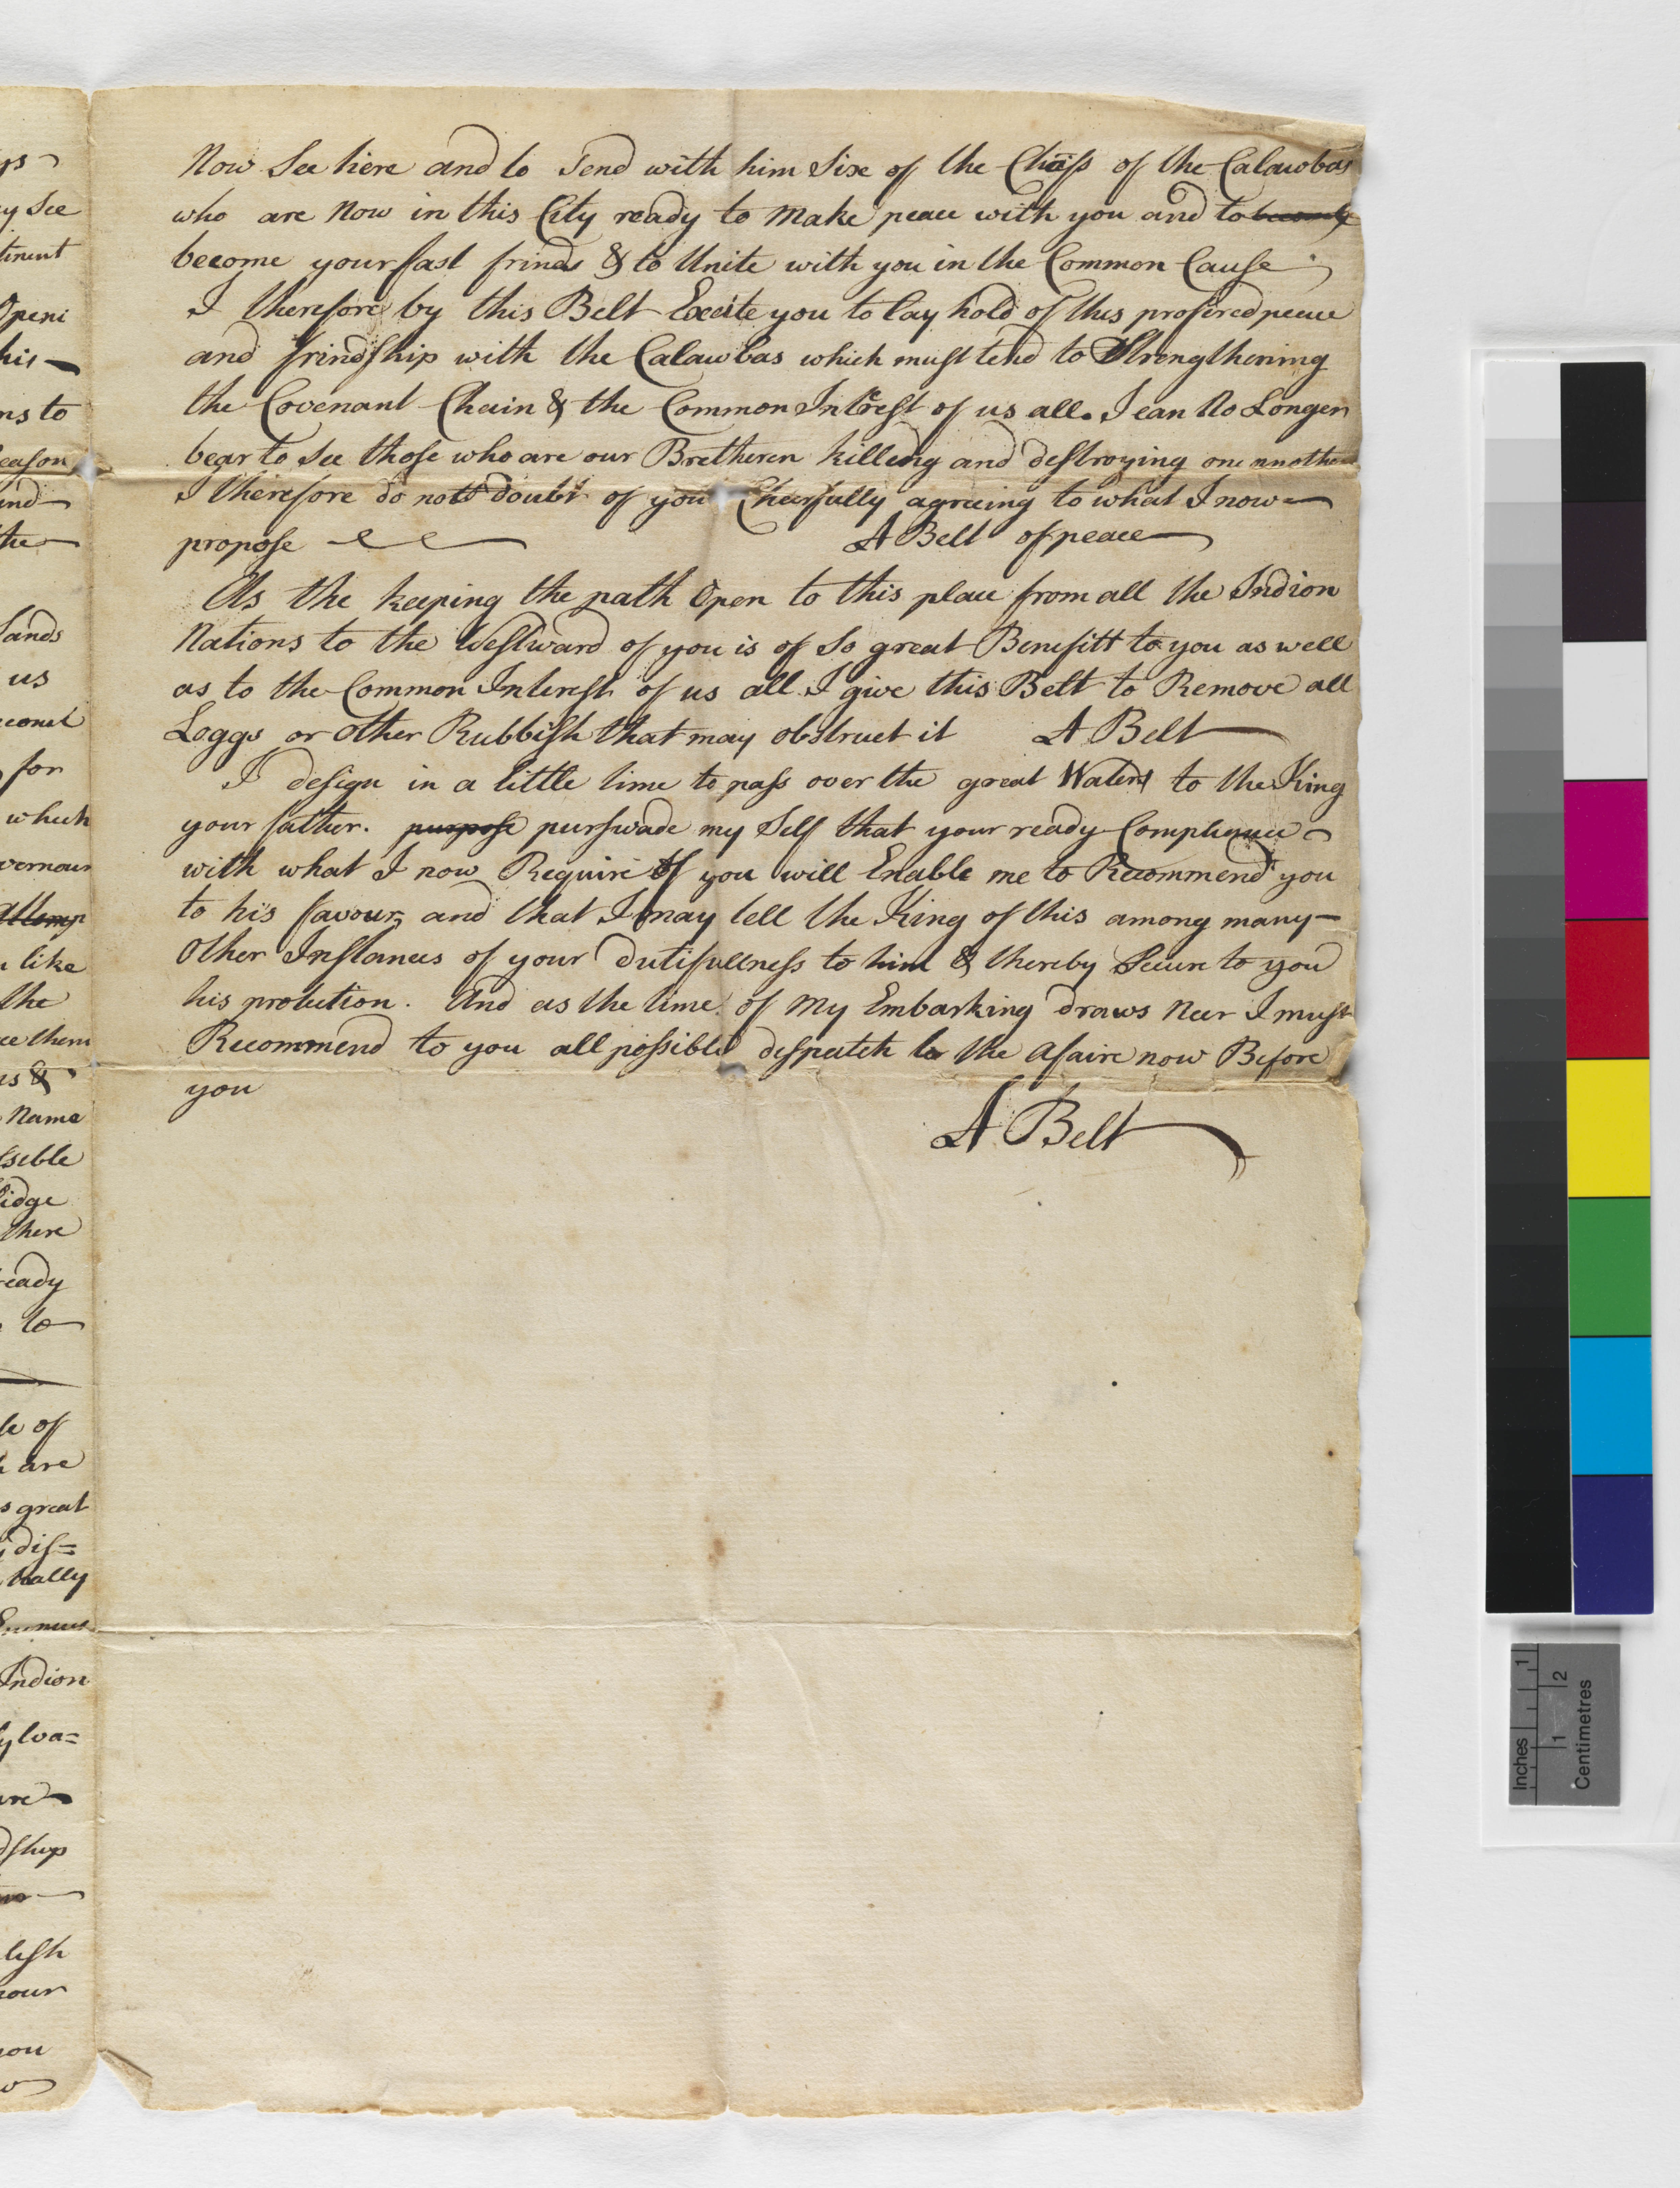 Now See here and to Send with him Sixe of the Chiefs of the Catawbas
who are Now in this City ready to Make peace with you and to
become your fast frinds & to Unite with you in the Common Cause
I therefore by this Belt Excite you to lay hold of this profered peace
and frindship with the Catawbas which must tend to Strengthening
the Covenant Chain & the Common Intrest of us all. I can No Longer
bear to See those who are our Bretheren killing and destroying one annother
I therefore do not doubt of you Cheerfully agreeing to what I now
propose
A Belt of peace
As the keeping the path Open to this place from all the Indion
Nations to the Westward of you is of So great Benefitt to you as well
as to the Common Interest of us all I give this Belt to Remove all
Loggs or other Rubbish that may obstruct it A Belt
I design in a little time to pass over the great Waters to the King
your father. purpose purswade my Self that your ready Complyance
with what I now Require of you will Enable me to Recommend you
to his favour, and that I may tell the King of this among many
Other Instances of your dutifullness to him & thereby Secure to you
his protection. And as the time of My Embarking draws Neer I must
Recommend to you all possible despatch to the afaire now Before
you
A Belt
y See
Openi
his
ns to
eason
and
the
Lands
us
for
which
vernour
like
the
ee them
Name
there
ready
to
of
are
s great
dis=
Indion
ylva=
dship
lish
nour
you
Inches 1
1 2
Centimetres